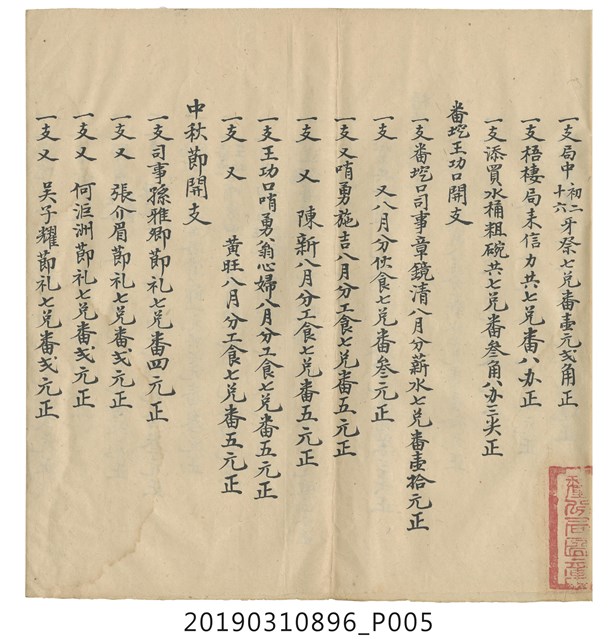 一支局中初二十六牙祭七兌番壹元弍角正
一支梧棲局來信力共七兌番八办正
一支添買水桶粗碗共七兌番叁角八办三尖正
番挖王功口開支
一支番挖口司事章鏡清八月分薪水七兌番壹拾元正
一支 又八月分伙食七兌番叁元正
一支又哨勇施吉八月分工食七兌番五元正
一支 又 陳新八月分工食七兌番五元正
一支王功口哨勇翁心婦八月分工食七兌番五元正
一支 又 黃旺八月分工食七兌番五元正
中秋節開支
一支司事孫雅卿節礼七兌番四元正
一支又 張介眉節礼七兌番弍元正
一支又 何洰洲節礼七兌番弍元正
一支又 吴子耀節礼七兌番弍元正
20190310896_P005